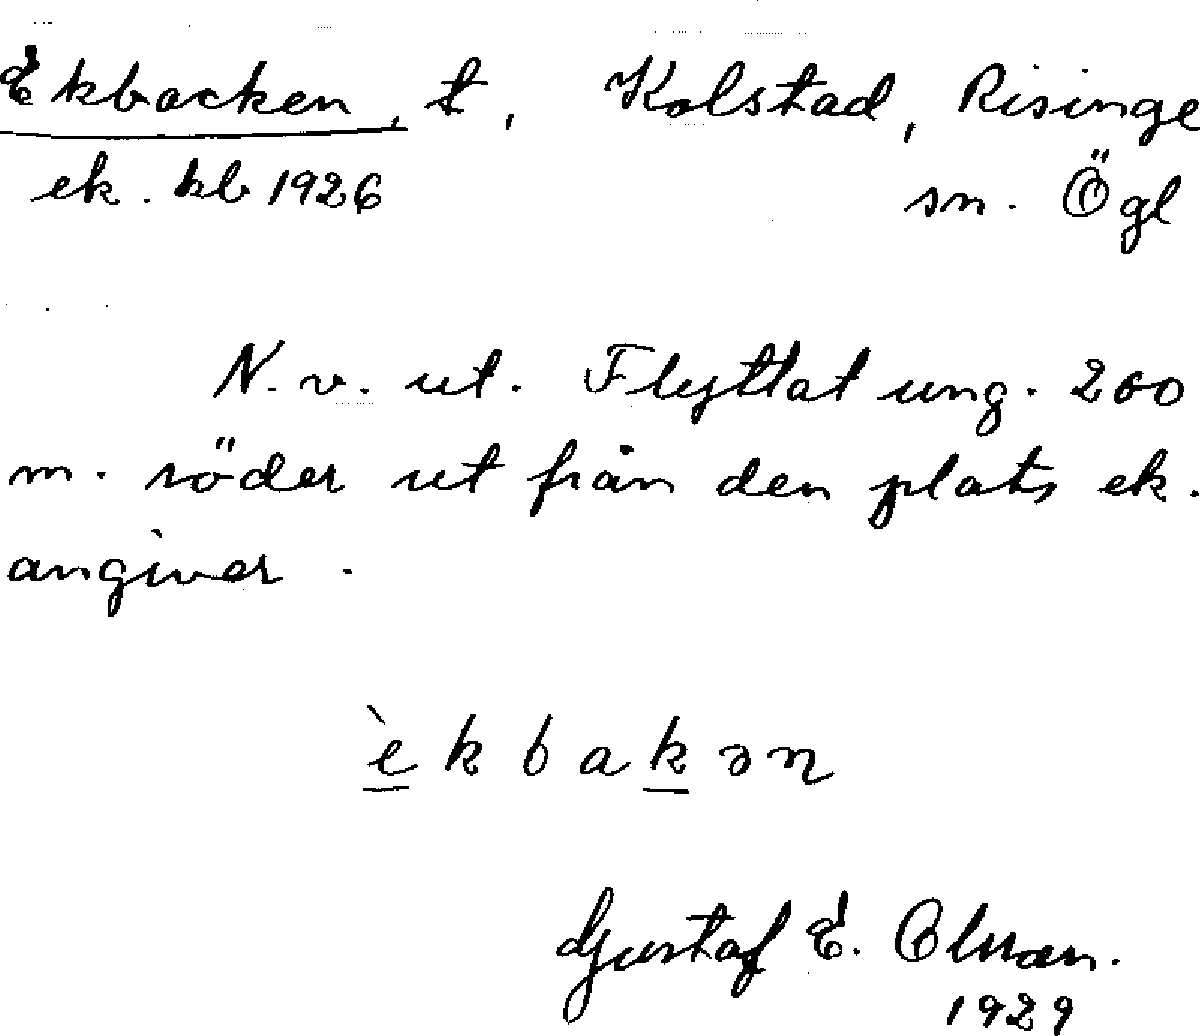 Ekbacken, t, Kolstad, Risinge
ek. kb 1926 sn. Ögl
N. v. ut. Flyttat ung. 200
m. söder ut från den plats ek.
angiver.
èkbakən
Gustaf E. Olsson.
1929